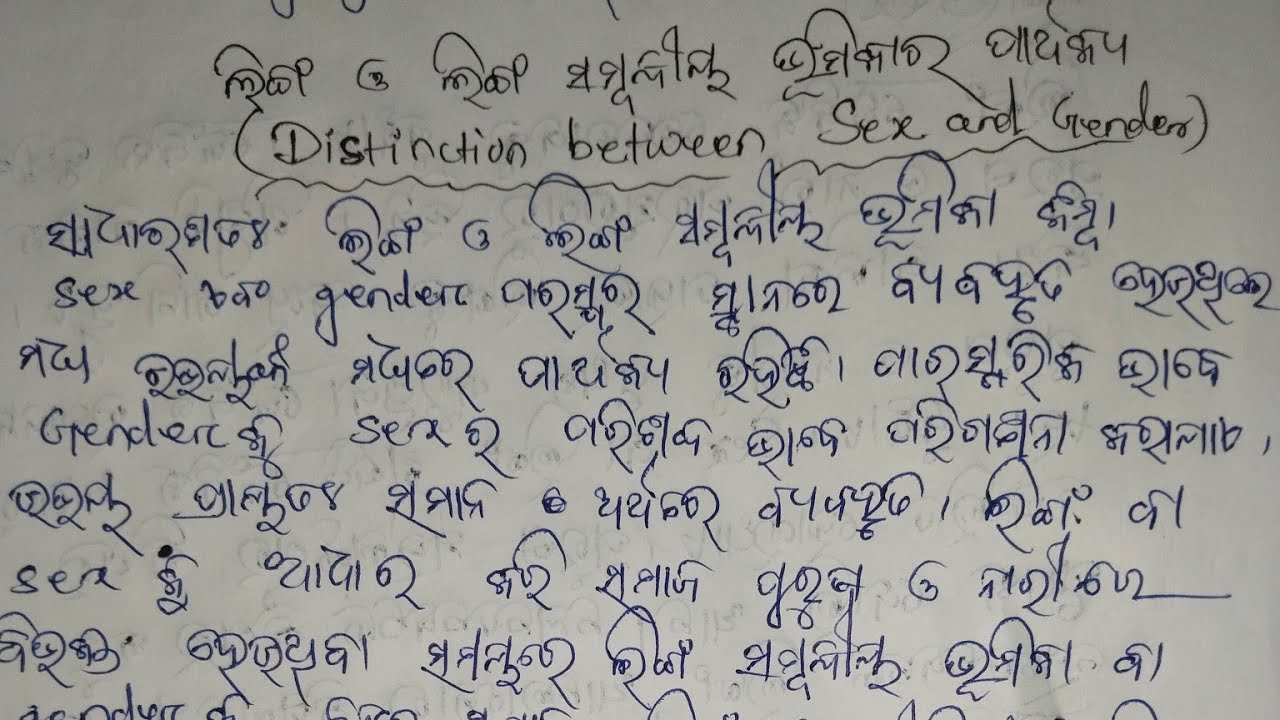 ଲିଙ୍ଗ ଓ ଲିଙ୍ଗ ସମ୍ବନ୍ଧୀୟ ଭୂମିକାର ପାର୍ଥକ୍ୟ
(Distinction between Sex and Gender)
ସାଧାରଣତଃ ଲିଙ୍ଗ ଓ ଲିଙ୍ଗ ସମ୍ବନ୍ଧୀୟ ଭୂମିକା କିମ୍ବା
sex ଏବଂ gender ପରସ୍ପର ସ୍ଥାନରେ ବ୍ୟବହୃତ ହେଉଥିଲେ
ମଧ୍ୟ ଉଭୟଙ୍କ ମଧ୍ୟରେ ପାର୍ଥକ୍ୟ ରହିଛି। ପାରସ୍ପରିକ ଭାବେ
Genderକୁ sexର ଭାବେ ପରିଗଣନା କରାଯାଏ,
ଉଭୟ ପ୍ରାୟତଃ ସମାନ ଅର୍ଥରେ ବ୍ୟବହୃତ। ଲିଙ୍ଗ ବା
sexକୁ ଆଧାର କରି ସମାଜ ପୁରୁଷ ଓ ନାରୀରେ
ବିଭକ୍ତ ହେଉଥିବା ସମୟରେ ଲିଙ୍ଗ ସମ୍ବନ୍ଧୀୟ ଭୂମିକା ବା